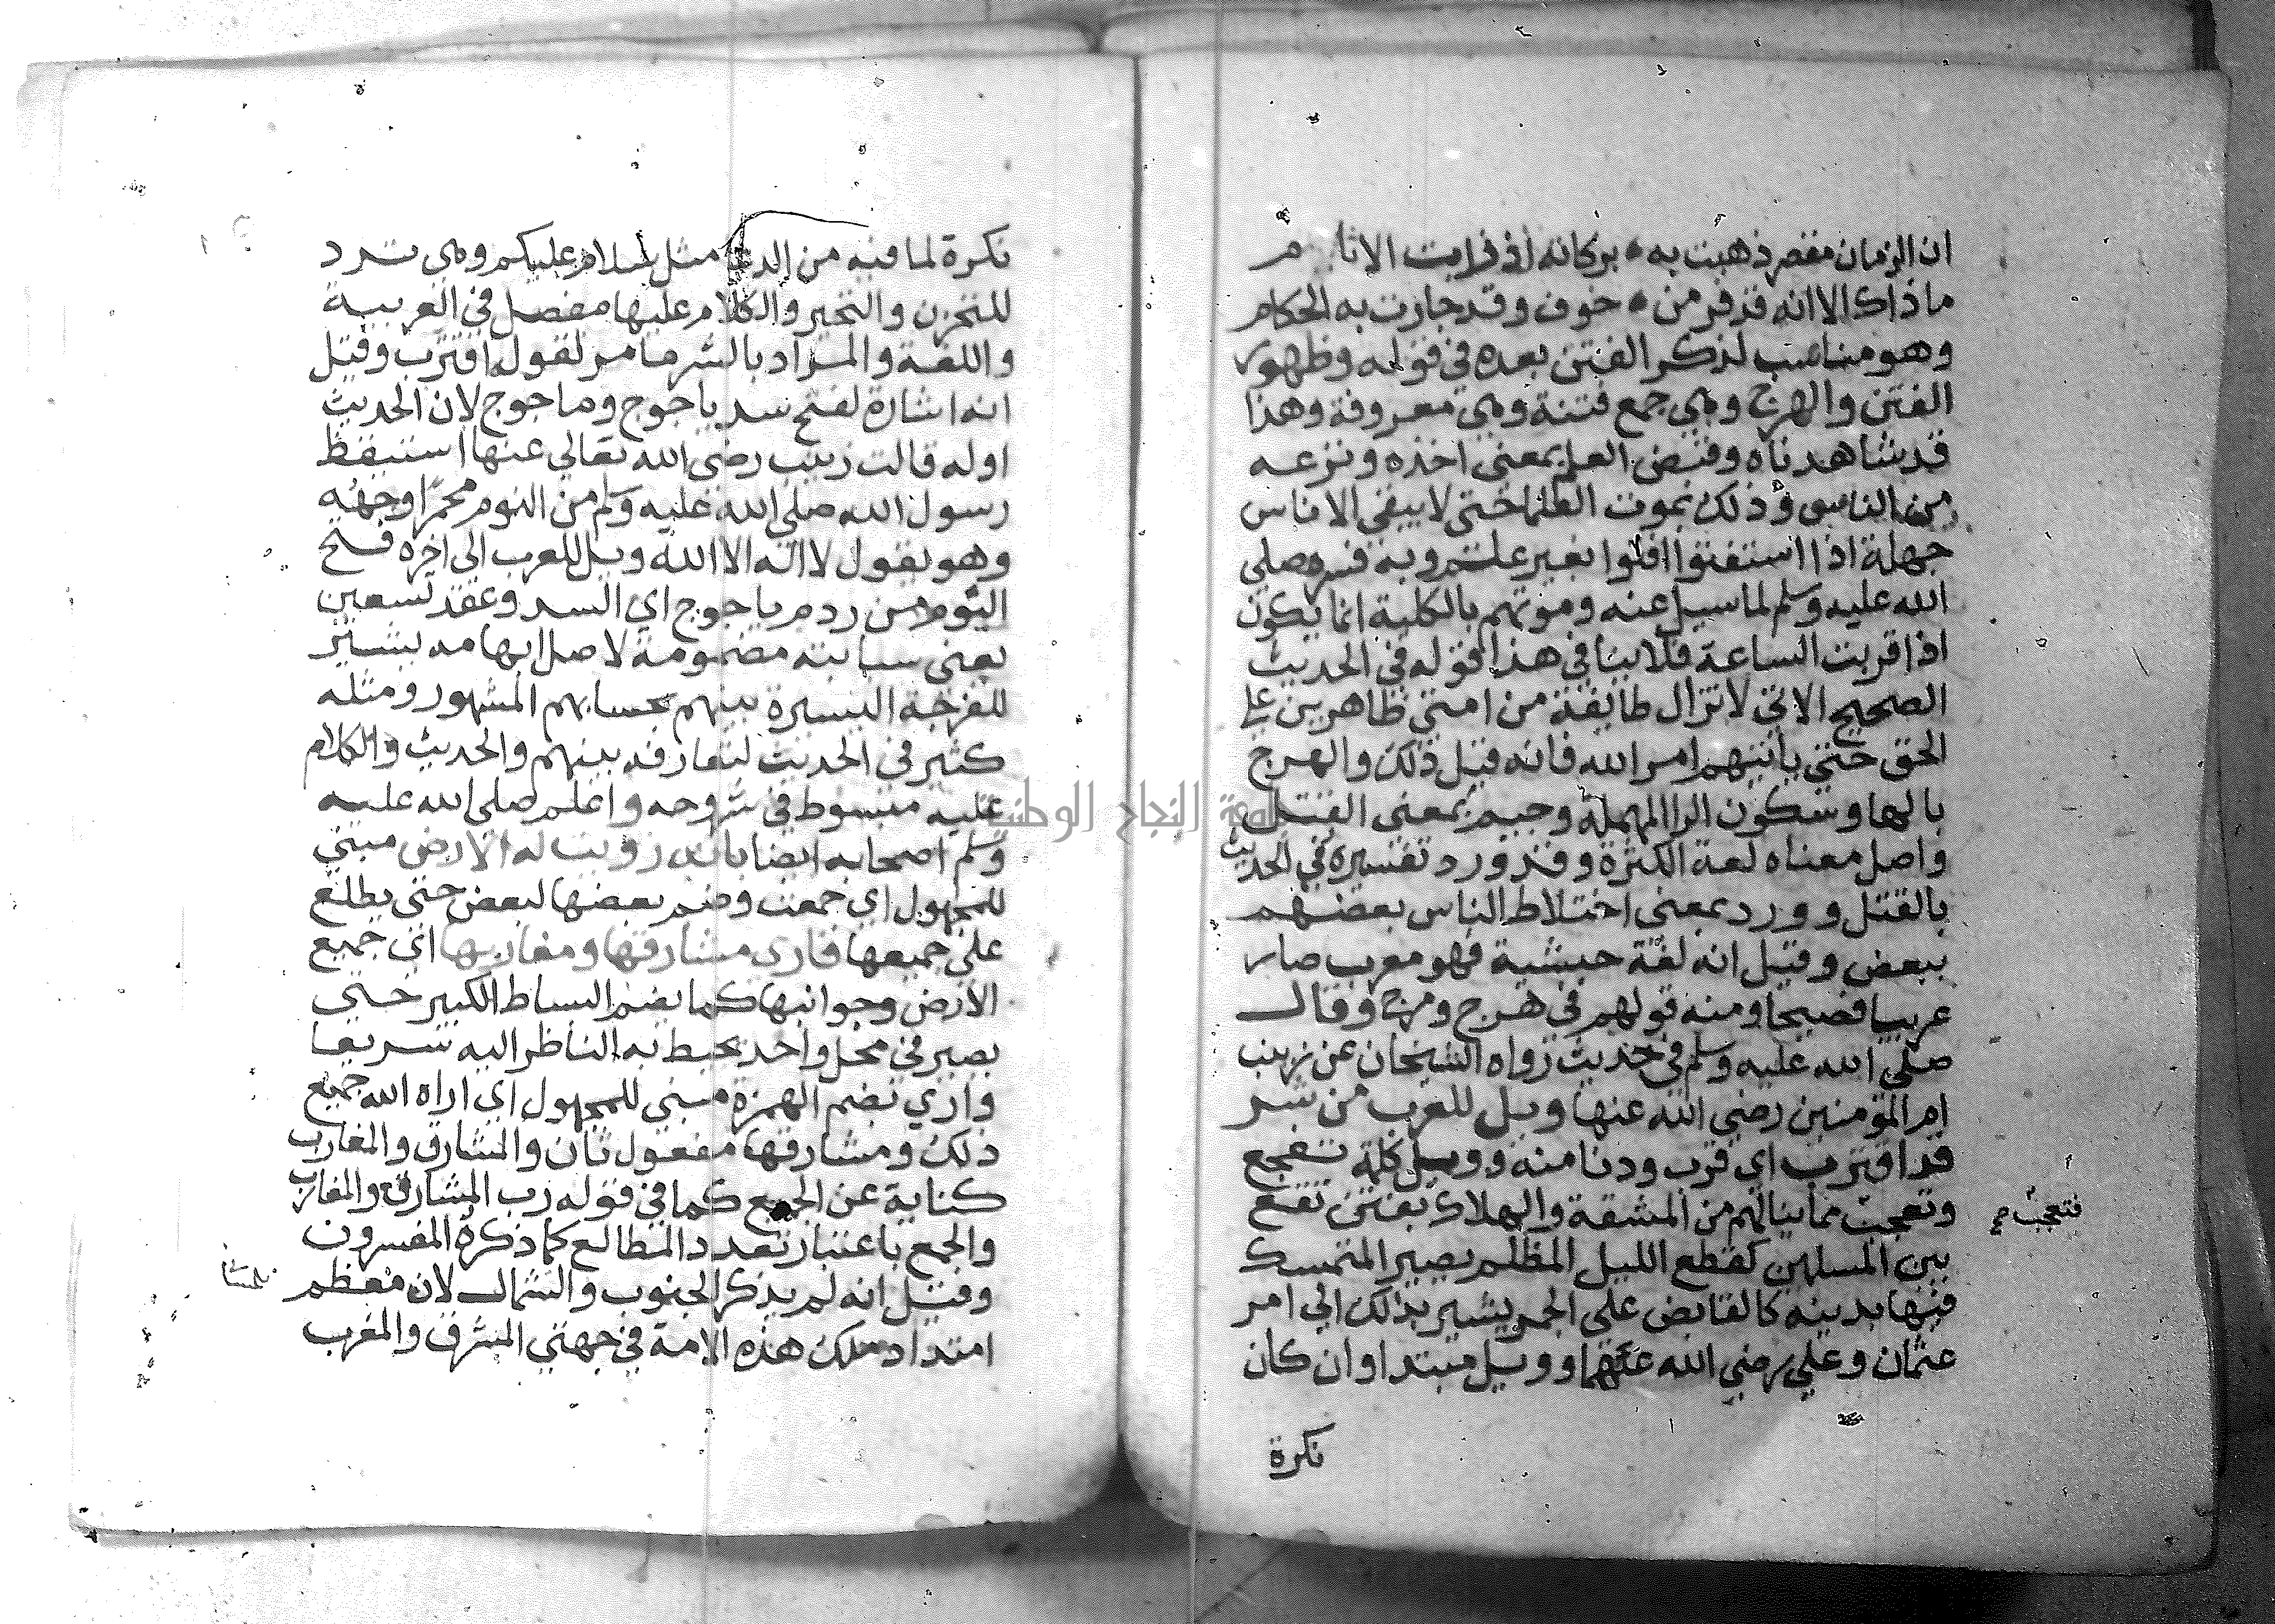 ان الزمان مقصر ذهبت به بركاته اذ فرابت الانام
ماذاك الا انه قد فر من خوف وقد جارت به الحكام
وهو مناسب لذكر الفتن بعده في قوله وظهور
الفتن والهرج وهي جمع فتنة وهي معروفة وهذا
قد شاهدناه وقبض العلم بمعنى اخذه ونزعه
من الناس وذلك بموت العلما حتى لا يبقى الا ناس
جهلة اذا استفتوا افتوا بغير علم وبه فسره صلى
الله عليه وسلم لما سيل عنه وموتهم بالكلية انما يكون
اذا قربت الساعة فلا ينافي هذا قوله في الحديث
الصحيح الاتي لا تزال طايفة من امتي ظاهرين على
الحق حتى ياتيهم امر الله فانه قبل ذلك والهرج
بالها وسكون الرا المهملة وجيم بمعنى القتل
واصل معناه لغة الكثرة وقد ورد تفسيره في الحديث
بالقتل وورد بمعنى اختلاط الناس بعضهم
ببعض وقيل انه لغة حبشية فهو معرب صار
عربيا فصيحا ومنه قولهم في هرج ومرج وقال
صلى الله عليه وسلم في حديث رواه الشيخان عن زينب
ام المؤمنين رضي الله عنها ويل للعرب من شر
قد اقترب اي قرب ودنا منه وويل كلمة تفجع
وتعجب مما ينالهم من المشقة والهلاك بفتن تقع
فتعجب صح
بين المسلمين كقطع الليل المظلم يصير المتمسك
فيها بدينه كالقابض على الجمر يشير بذلك الى امر
عثمان وعلي رضي الله عنهما وويل مبتدا وان كان
نكرة
نكرة لما فيه من الدعا مثل سلام عليكم وهي ترد
للتحزن والتحير والكلام عليها مفصل في العربية
واللغة والمراد بالشر ما مر لقوله اقترب وقيل
انه اشارة لفتح سد ياجوج وماجوج لان الحديث
اوله قالت زينب رضى الله تعالى عنها استيقظ
رسول الله صلى الله عليه وسلم من النوم محمرا وجهه
وهو يقول لا اله الا الله ويل للعرب الى اخره فتح
اليوم من ردم ياجوج اي السد وعقد تسعين
يعنى سبابته مضمومة لاصل ابهامه يشير
للفرجة اليسيرة بينهم بحسابهم المشهور ومثله
كثير في الحديث لتعارفه بينهم والحديث والكلام
عليه مبسوط في شروحه واعلم صلى الله عليه
وسلم اصحابه ايضا بانه زويت له الارض مبني
للمجهول اي جمعت وضم بعضها لبعض حتى يطلع
على جميعها فارى مشارقها ومغاربها اي جميع
الارض وجوانبها كما يضم البساط الكبير حتى
يصير في محل واحد يحيط به الناظر اليه سريعا
واري بضم الهمزة مبني للمجهول اي اراه الله جميع
ذلك ومشارقها مفعول ثان والمشارق والمغارب
كناية عن الجميع كما في قوله رب المشارق والمغارب
والجمع باعتبار تعدد المطالع كما ذكره المفسرون
وقيل انه لم يذكر الجنوب والشمال لان معظم
امتداد ملك هذه الامة في جهتي المشرق والمغرب
النجاح الوطنية